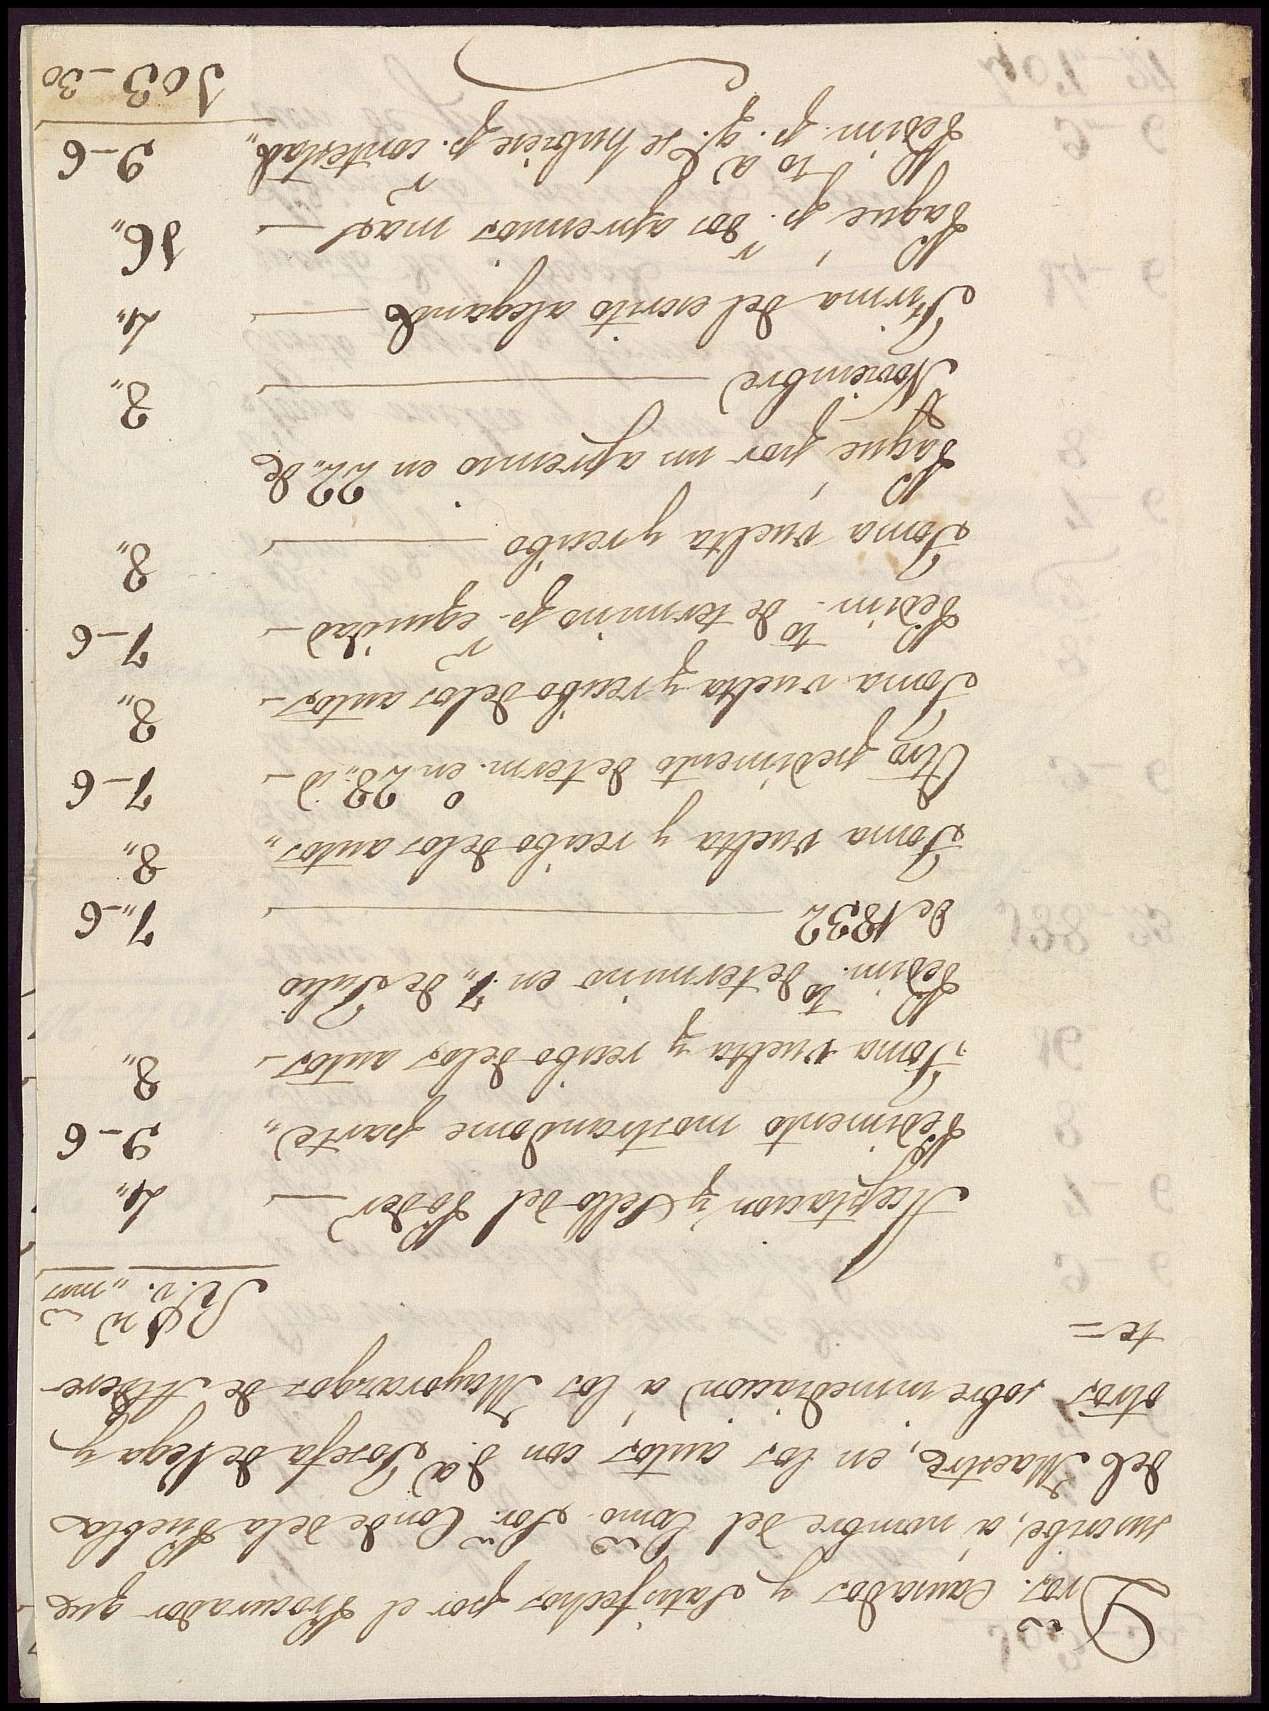 Dros. Causados y Satisfechos por el Procurador que
suscribe, á nombre del Exmo. Sor. Conde dela Puebla
del Maestre, en los autos, con Da. Josefa de Vega y
otros sobre inmediacion á los Mayorazgos de Aldere-
te =
Rs. vn. mrs
Aceptacion y Sello del Poder — 4,,
Pedimento mostrandome parte,, 9-6
Toma vuelta y recibo delos autos - 8,,
Pedimto. de termino en 7,, de Julio
de 1832 — 7,,-6
Toma vuelta y recibo delos autos,, 8,,
Otro pedimento determo. en 28,, id - 7-6
Toma vuelta y recibo delos autos - 8,,
Pedimto. de termino pr. equidad - 7-6
Toma vuelta y recibo — 8,,
Pagué por un apremio en 22,, de
Noviembre — 8,,
Firma del escrito alegando — 4,,
Pagué pr. dos apremios mas — 16,,
Pedimto. pa. q. se hubiese pr. contestad,, 9-6
103-30